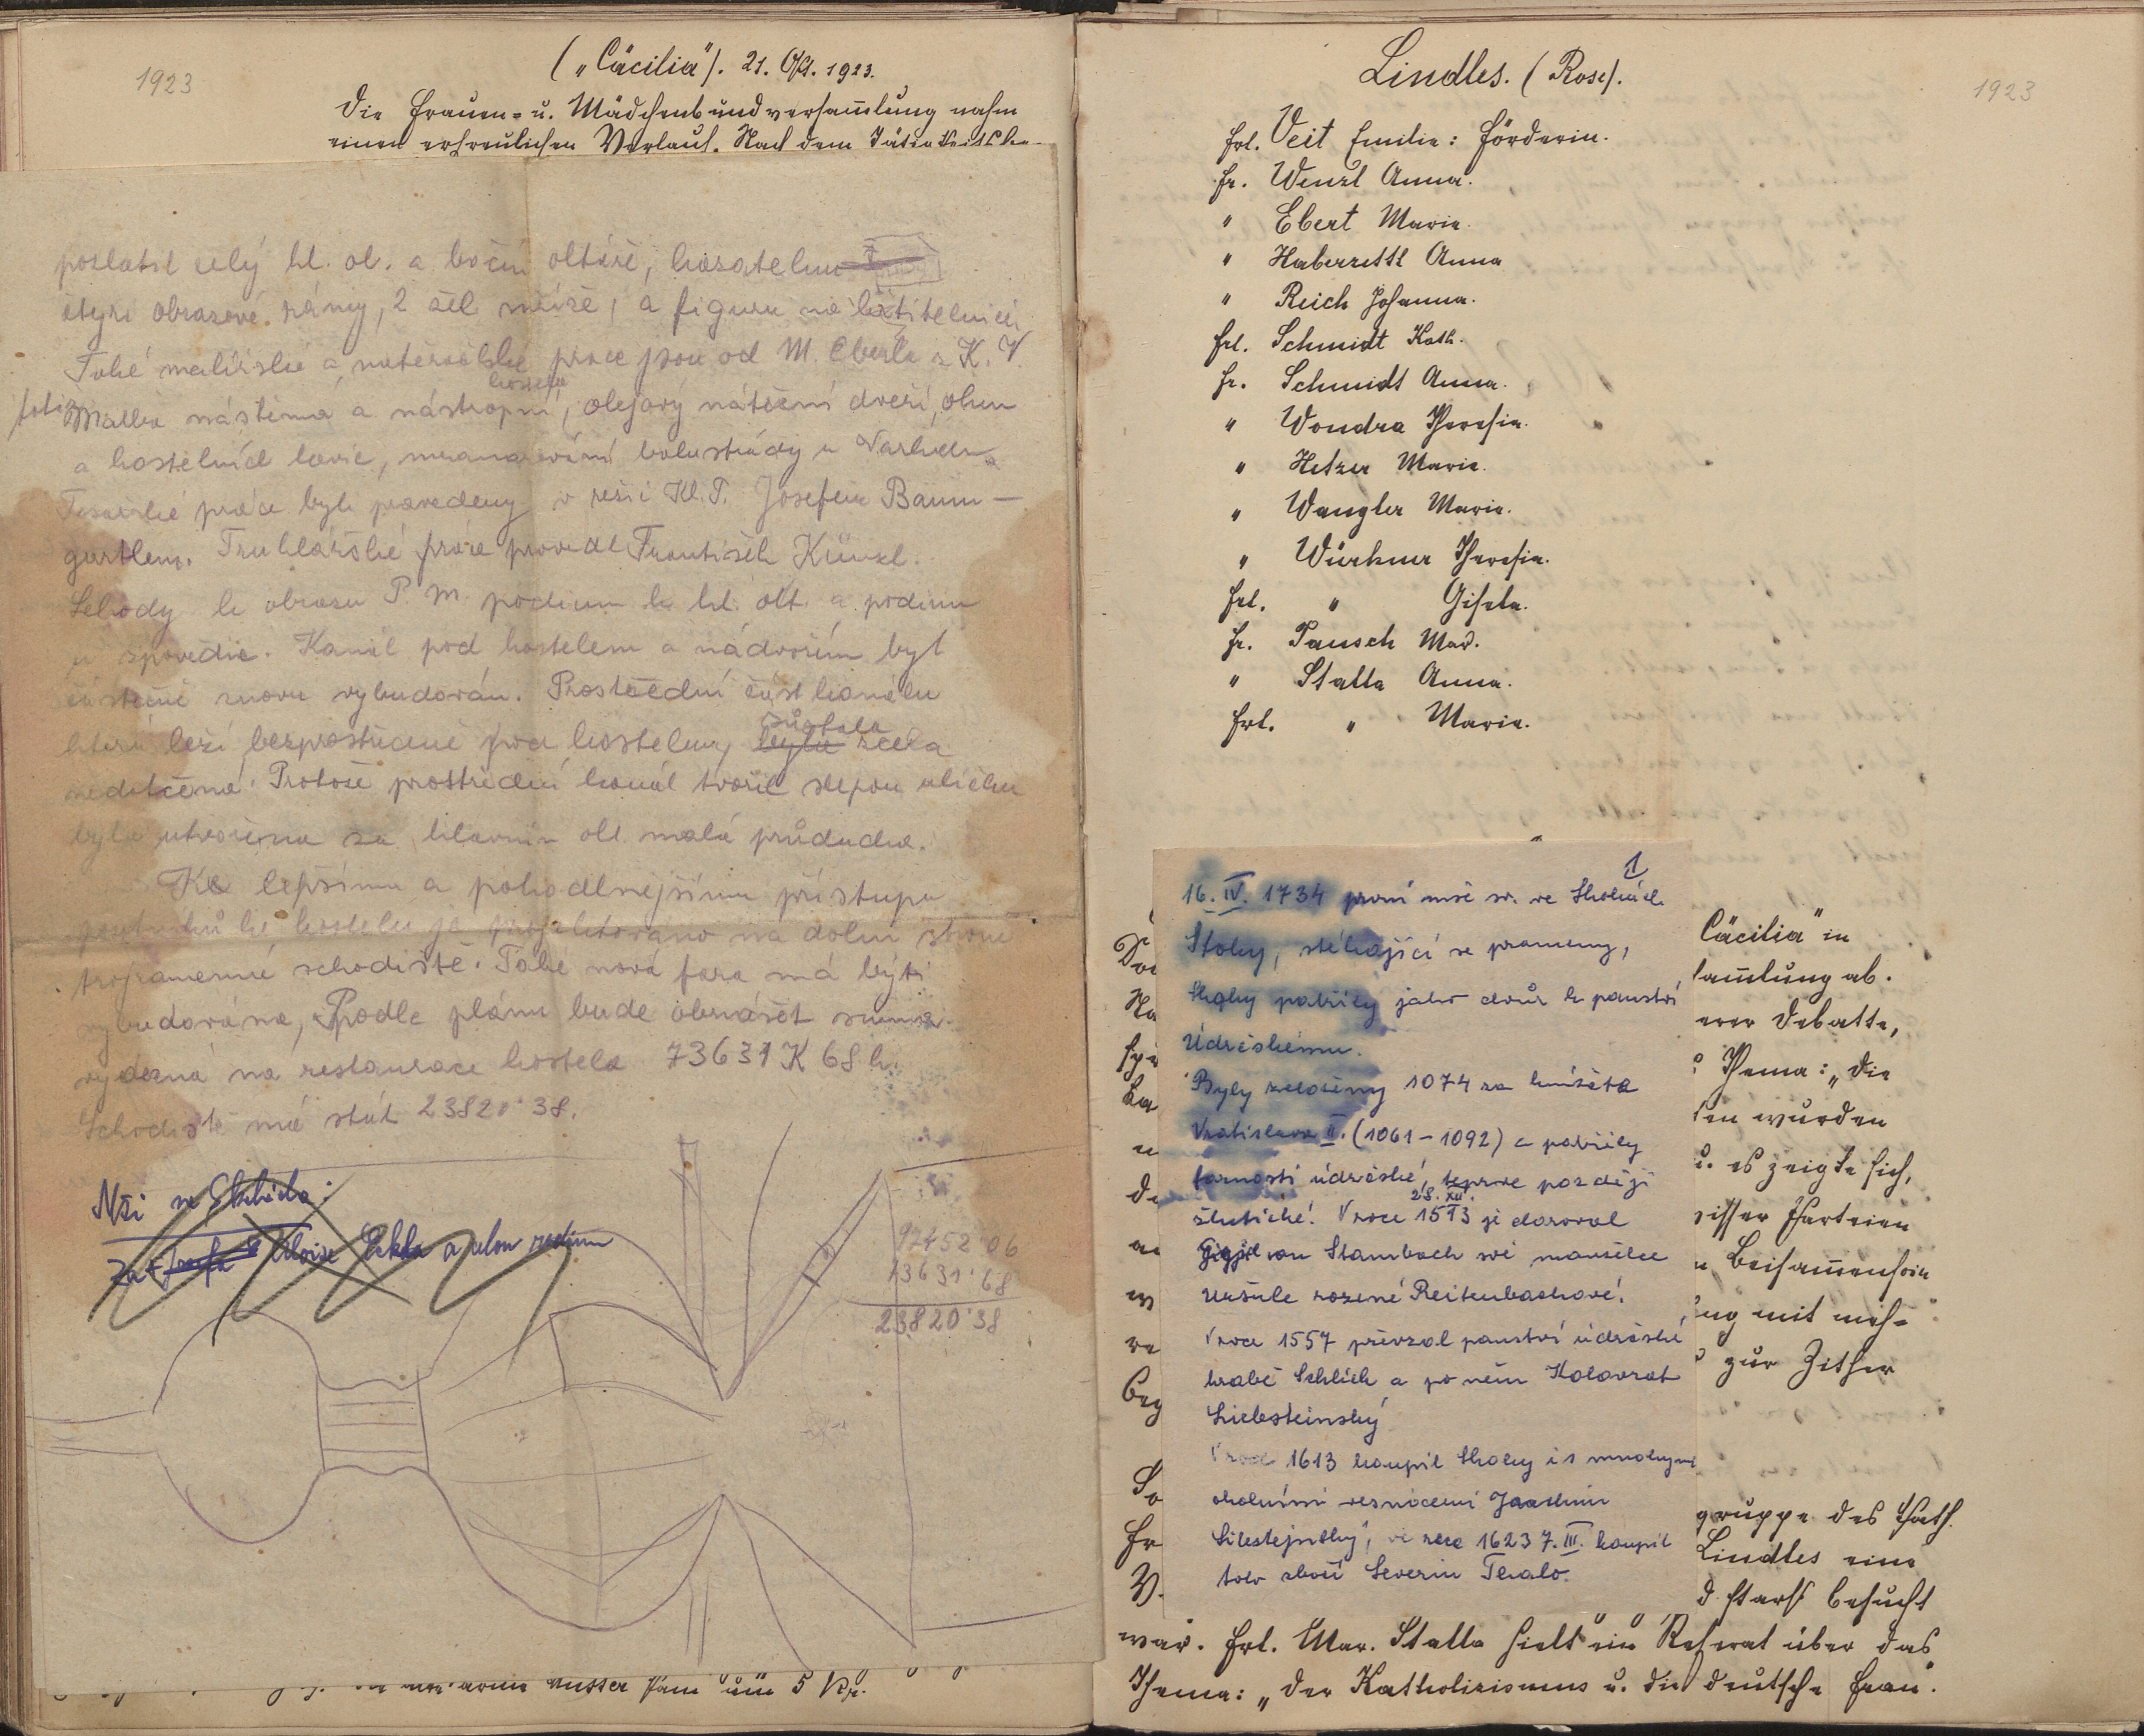 1923
("Cäcilia"). 21. Okt. 1923.
Die Frauen- u. Mädchenbundversam̅lung nahm
einen erfreulichen Verlauf. Nach dem
pozlatil celý hl. ol. a boční oltáře, kazatelnu
čtyři obrazové rámy, 2 a figuru na křtitelnici
Také malířské a natěračské práce jsou od M. Eberla z K. V.
kostela
Malba nástěnná a nástropní, olejový nátěr dveří, oken
a kostelních lavic, mramorování balustrády u
Tesařské práce byly provedeny v režii Kl. T. Josefem Baum-
gartlem. Truhlářské práce provedl František Künzl.
Schody k obrazu P. M. podium k hl. olt. a podium
u zpovědnic. Kanál pod kostelem a nádvořím byl
částečně znovu vybudován. Prostřední část kanálu
zůstala
která leží bezprostředně pod kostelem, byla zcela
nedotčená. Protože prostřední kanál tvořil slepou uličku
byla utvořena za hlavním olt. malá průducha.
Ke lepšímu a pohodlnějšímu přístupu
poutníků ke kostelu je projektováno na dolní straně
trojramenné schodiště. Také nová fara má býti
vybudována, Podle plánu bude obnášet suma
vydaná na restaurace kostela 73631 K 68 h.
Schodiště má stát 23820·38.
Mši sv.
Za Aloise a celou rodinu
97452·06
73631·68
23820·38
um 5 Kr.
1923
Lindles. (Rose).
Frl. Veit Emilie: Förderin.
Fr. Wenzl Anna.
" Ebert Marie.
" Haberzettl Anna
" Reich Johanna.
Frl. Schmidt Kath.
Fr. Schmidt Anna.
" Wondra Theresia.
" Hetzer Marie.
" Wangler Marie.
" Würkner Theresia.
Frl. " Gisela.
Fr. Pausch Mar.
" Stalla Anna.
Frl. " Marie.
1
16. IV. 1734 první mše sv. ve Skokách.
Stoky, stékající se prameny,
Skoky patřily jako dvůr k panství
Údrčskému.
Byly založeny 1074 za knížete
Vratislava II. (1061-1092) a patřily
farnosti údrčské, teprve později
28. XII.
žlutické. V roce 1513 je daroval
von Stambach své manželce
Uršule rozené Reitenbachové.
V roce 1557 převzal panství údrčské
hrabě Schlick a po něm Kolovrat
Liebsteinský
V roce 1613 koupil Skoky i s mnohými
okolními vesnicemi Jáchim
Libštejnský, ve roce 1623 7. III. koupil
toto zboží Severin Thalo.
Cäcilia" in
sam̅lung ab.
erer Debatte,
Thema: "Die
sen wurden
u. es zeigte sich,
Parteien
Beisam̅ensein
ung mit
zur Zither
gruppe des Kath.
Lindles eine
d stark besucht
war. Frl. Mar. Stalla hielt ein Referat über das
Thema: "Der Katholizismus u. die deutsche Frau".